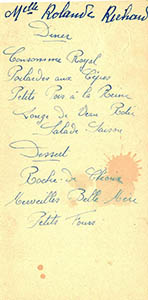 Melle Rolande Richard
Diner
Consommé Royal
Poulardes aux Cèpes
Petits Pois à la Reine
Longe de Veau Rotie
Salade Saison
Dessert
Roche de Choux
Merveilles Belle Mere
Petits Fours